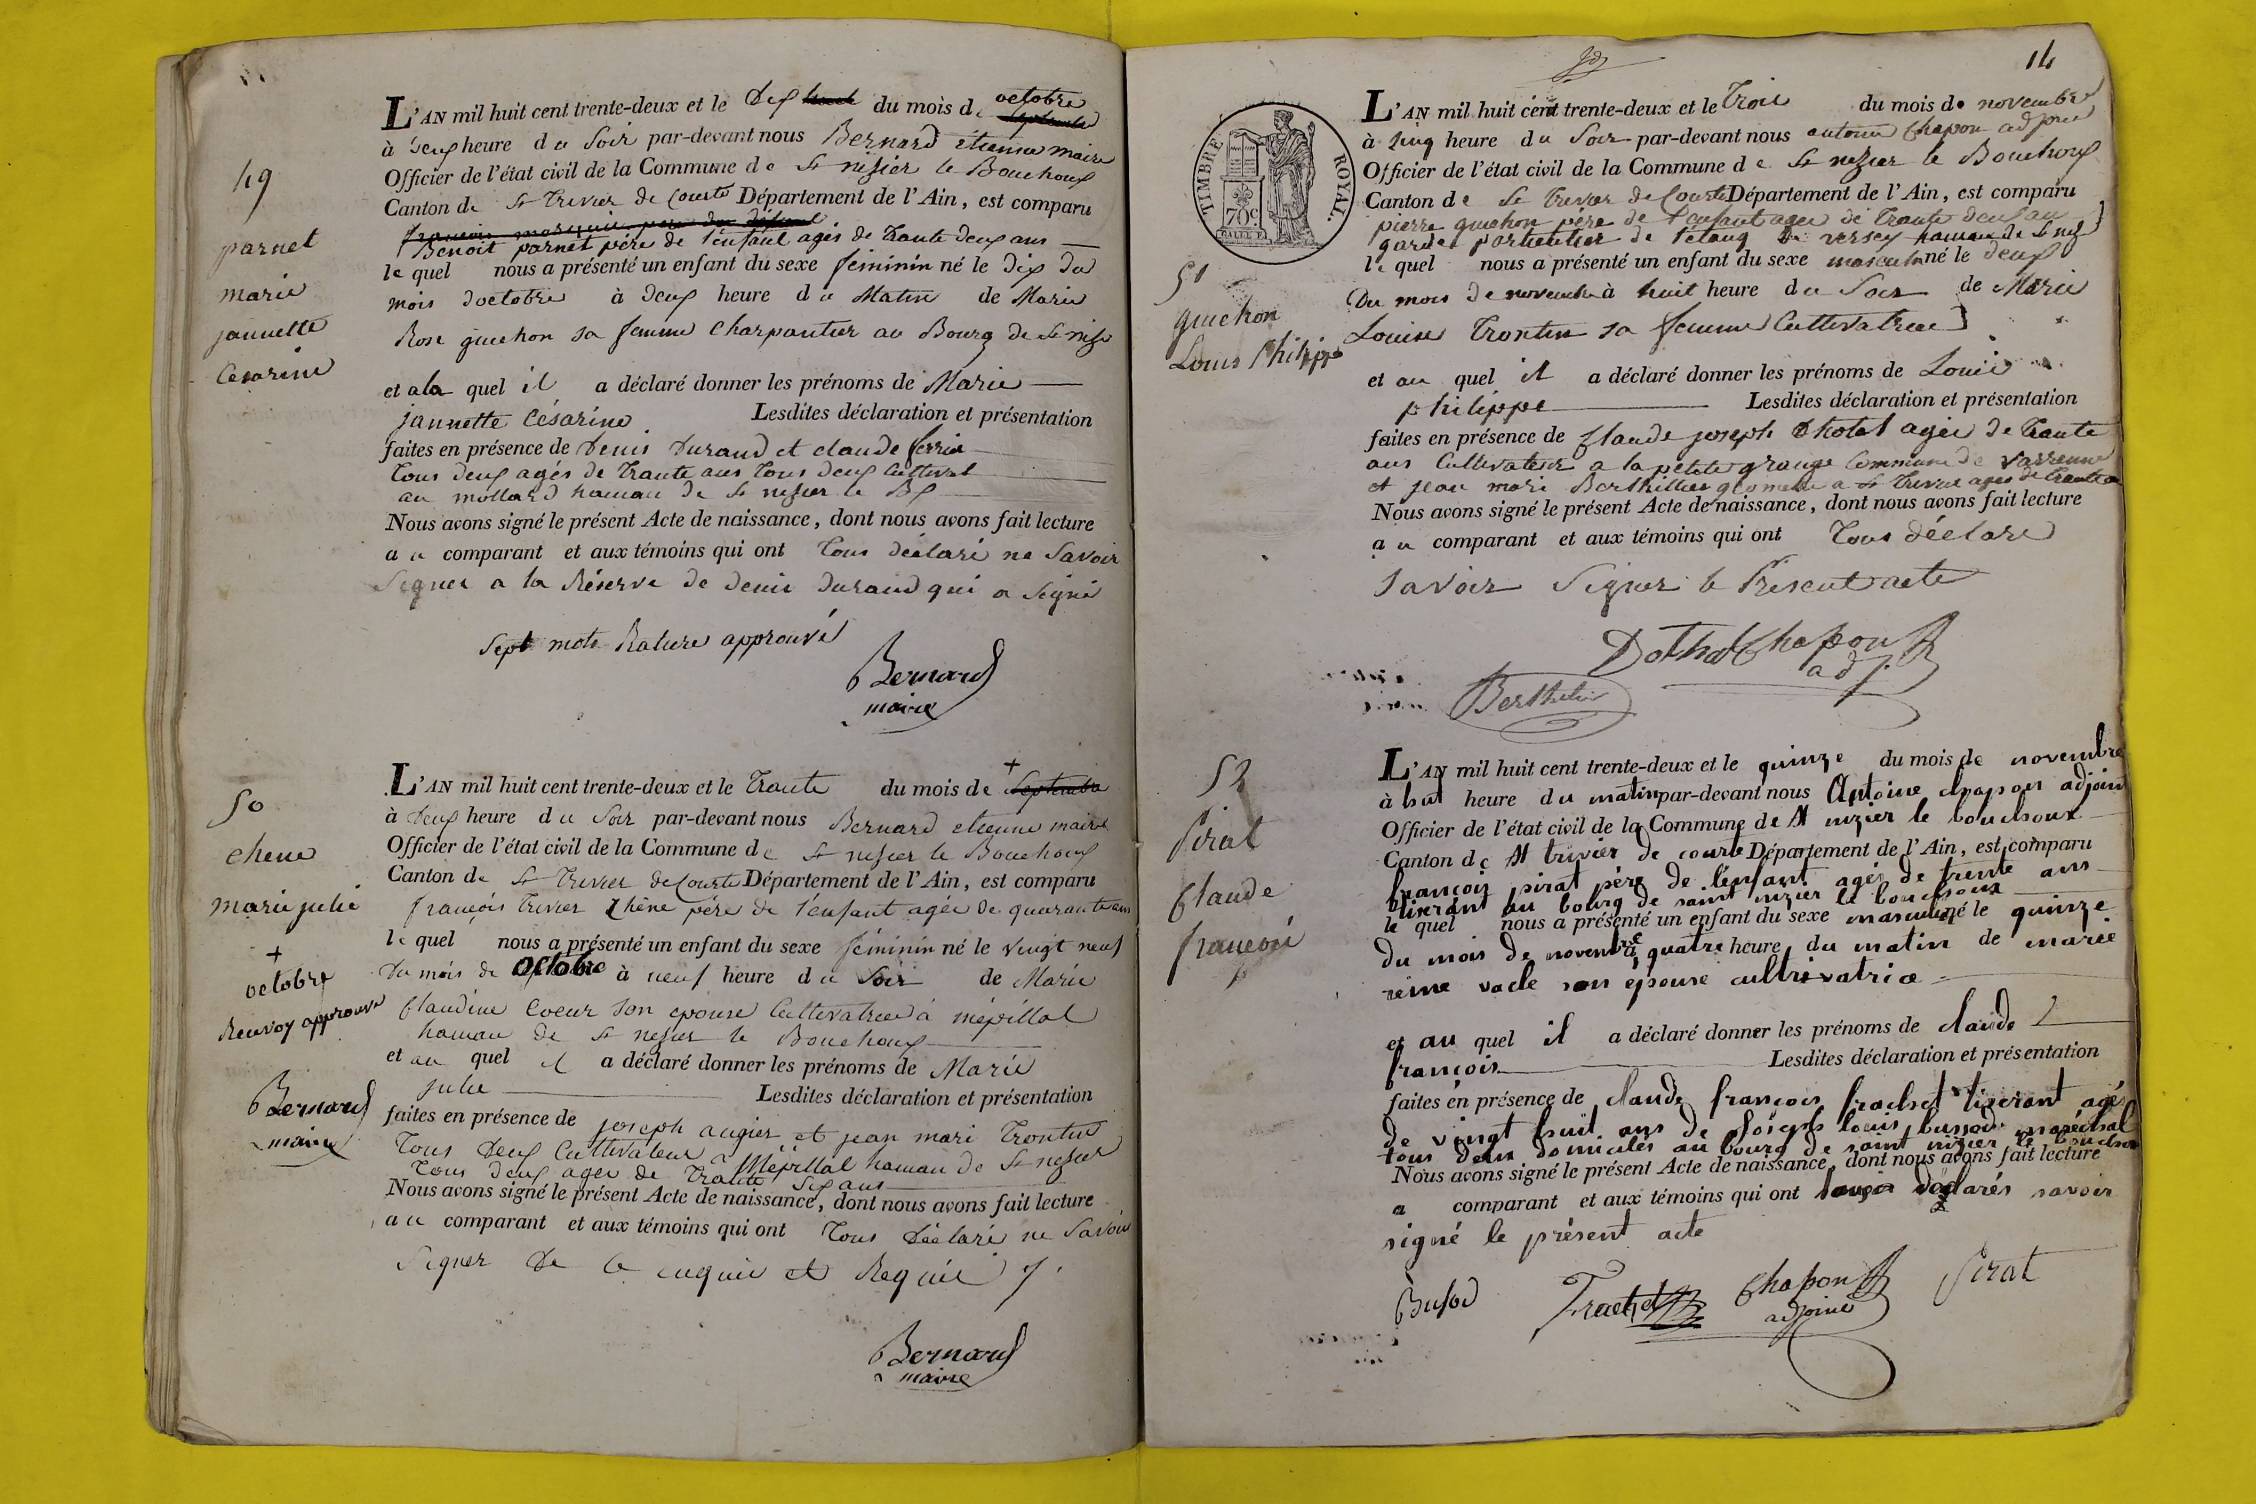 49
parnet
marie
jannette
Césarine
L'AN mil huit cent trente-deux et le Dix du mois de octobre
à Deux heure du Soir par-devant nous Bernard étienne maire
Officier de l'état civil de la Commune de St nizier le Bouchoux
Canton de St Trivier de Courte Département de l'Ain, est comparu
Benoit parnet père de l'enfant agés de Trante Deux ans
le quel nous a présenté un enfant du sexe féminin né le Dix du
mois d'octobre à Deux heure du Matin de Marie
Rose guichon sa femme Charpantier au Bourg de St nizr
et a la quel il a déclaré donner les prénoms de Marie
jannette Césarine Lesdites déclaration et présentation
faites en présence de Denis Durand et claude ferria
Tous deux agés de Trante ans Tous deux Cultivat
au mollard hamau de St nizier le Bx
Nous avons signé le présent Acte de naissance, dont nous avons fait lecture
au comparant et aux témoins qui ont Tous déclaré ne Savoir
Signer a la Réserve de denis durand qui a Signé
Sept mots Rature approuvé
Bernard
maire
50
Chene
marie julie
+
octobre
Renvoy approuvé
Bernard
maire
L'AN mil huit cent trente-deux et le Trante du mois de + Septembre
à Deux heure du Soir par-devant nous Bernard etienne maire
Officier de l'état civil de la Commune de St nizier le Bouchoux
Canton de St Trivier de Courte Département de l'Ain, est comparu
françois Trivier Chêne père de l'enfant agée de quarante ans
le quel nous a présenté un enfant du sexe féminin né le vingt neuf
Du mois de Octobre à neuf heure du Soir de Marie
Claudine Coeur son epouse Cultivatrice à mépillat
hamau de St nizier le Bouchoux
et au quel il a déclaré donner les prénoms de Marie
julie Lesdites déclaration et présentation
faites en présence de joseph augier et jean mari Trontin
Tous Deux Cultivateur a Mépillat hamau de St nizier
Tous deux agée de Trante Six ans
Nous avons signé le présent Acte de naissance, dont nous avons fait lecture
au comparant et aux témoins qui ont Tous Déclaré ne Savoir
Signer De ce enquie et Requie
Bernard
maire
14
TIMBRE ROYAL.
70c
51
guichon
Louis Philippe
L'AN mil huit cent trente-deux et le Trois du mois de novembre
à Cinq heure du Soir par-devant nous antoine Chapon adjoin
Officier de l'état civil de la Commune de St nizier le Bouchoux
Canton de St Trivier de Courte Département de l'Ain, est comparu
pierre guichon père de l'enfant agée de Trante deux an
garde partiqulier de l'étang de versey hamau de St niz
le quel nous a présenté un enfant du sexe masculin né le deux
Du mois de novembre à huit heure du Soir de Marie
Louise Trontin sa femme Cultivatrice
et au quel il a déclaré donner les prénoms de Louis
philippe Lesdites déclaration et présentation
faites en présence de Claude joseph Dhotal agée de Trante
ans Cultivateur a la petite grange Commune de varrenne
et jean mari Berthillier géometre a St Trivier agée de Trante a
Nous avons signé le présent Acte de naissance, dont nous avons fait lecture
au comparant et aux témoins qui ont Tous déclare
savoir Signer le Present acte
Dothal Chapon
adj.
Berthelier
52
Pirat
Claude
françois
L'AN mil huit cent trente-deux et le quinze du mois de novembre
à huit heure du matin par-devant nous Antoine chapon adjoint
Officier de l'état civil de la Commune de St nizier le bouchoux
Canton de St trivier de courte Département de l'Ain, est comparu
françois pirat père de l'enfant agés de trente ans
tixerant au bourg de saint nizier le bouchoux
le quel nous a présenté un enfant du sexe masculin né le quinze
du mois de novembre à quatre heure du matin de marie
reine vacle son épouse cultivatrice
et au quel il a déclaré donner les prénoms de claude
françois Lesdites déclaration et présentation
faites en présence de claude françois frachet tixerant agé
de vingt huit ans de Joseph louis bussod maréchal
tous deux domicilés au bourg de saint nizier le bouchou
Nous avons signé le présent Acte de naissance, dont nous avons fait lecture
a comparant et aux témoins qui ont déclarés savoir
signé le présent acte
Busod Frachet Chapon Pirat
adjoint